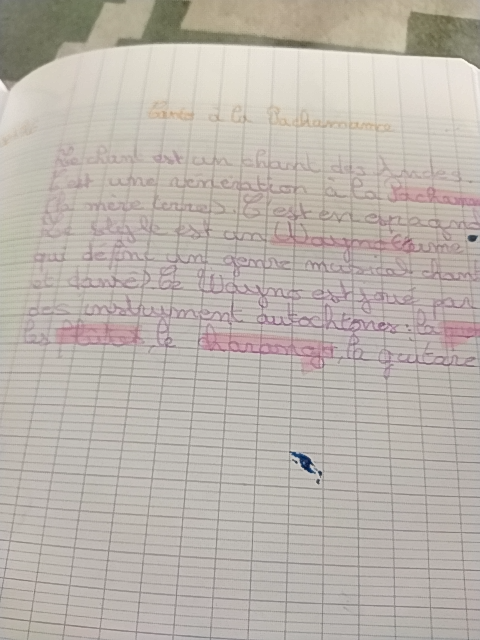 Canto à la Pachamama
Le chant est un chant des Andes.
C'est une vénération à la Pacham
la mère terre. C'est en espagn
Le style est un Wayno
qui définit un genre musical chant
et dansé. Le Wayno est joué par
des instruyment autochtones : la
les flutes, le charango, la guitare